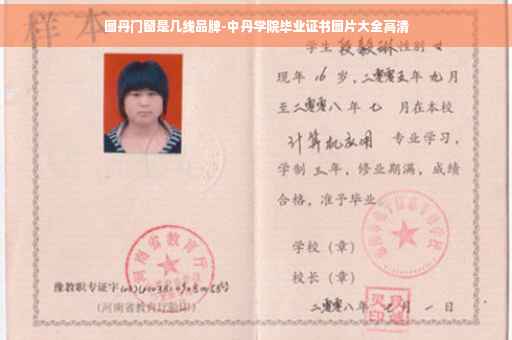 圖丹门窗是几线品牌-中丹学院毕业证书图片大全高清
样本
学生段毅琳性别女
现年 16 岁，二零零五年九月
至二零零八年七 月在本校
计算机应用 专业学习，
学制三年，修业期满，成绩
合格，准予毕业。
学校（章）
校长（章）
二零零八年七月一日
河南省教育厅
豫教职专证字
（河南省教育厅验印）